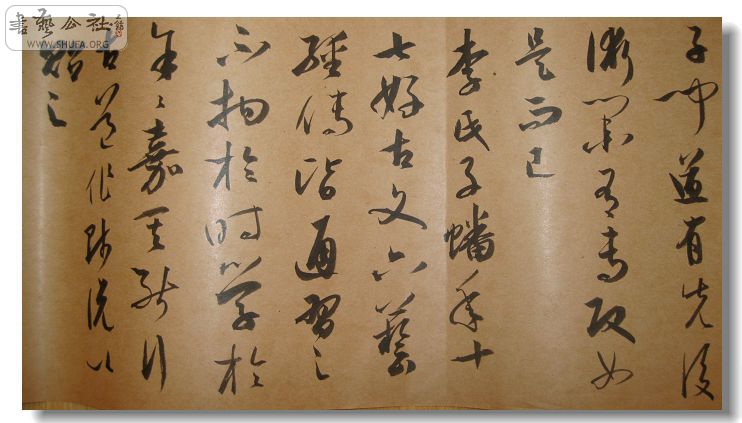 子聞道有先後
術業有專攻如
是而已
李氏子蟠年十
七好古文六藝
經傳皆通習之
不拘於時學於
余〻嘉其能行
古道作師說以
貽之
書藝公社
WWW.SHUFA.ORG